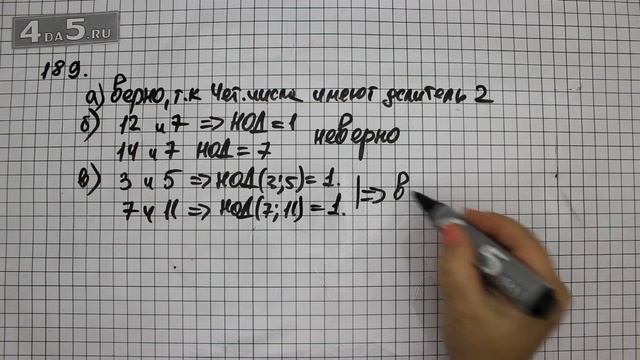 4DA5.RU
189.
а) Верно, т.к чет. числа имеют делитель 2
б) 12 и 7 => НОД = 1
14 и 7 НОД = 7 неверно
в) 3 и 5 => НОД(3;5) = 1.
7 и 11 => НОД(7;11) = 1. | => В
5